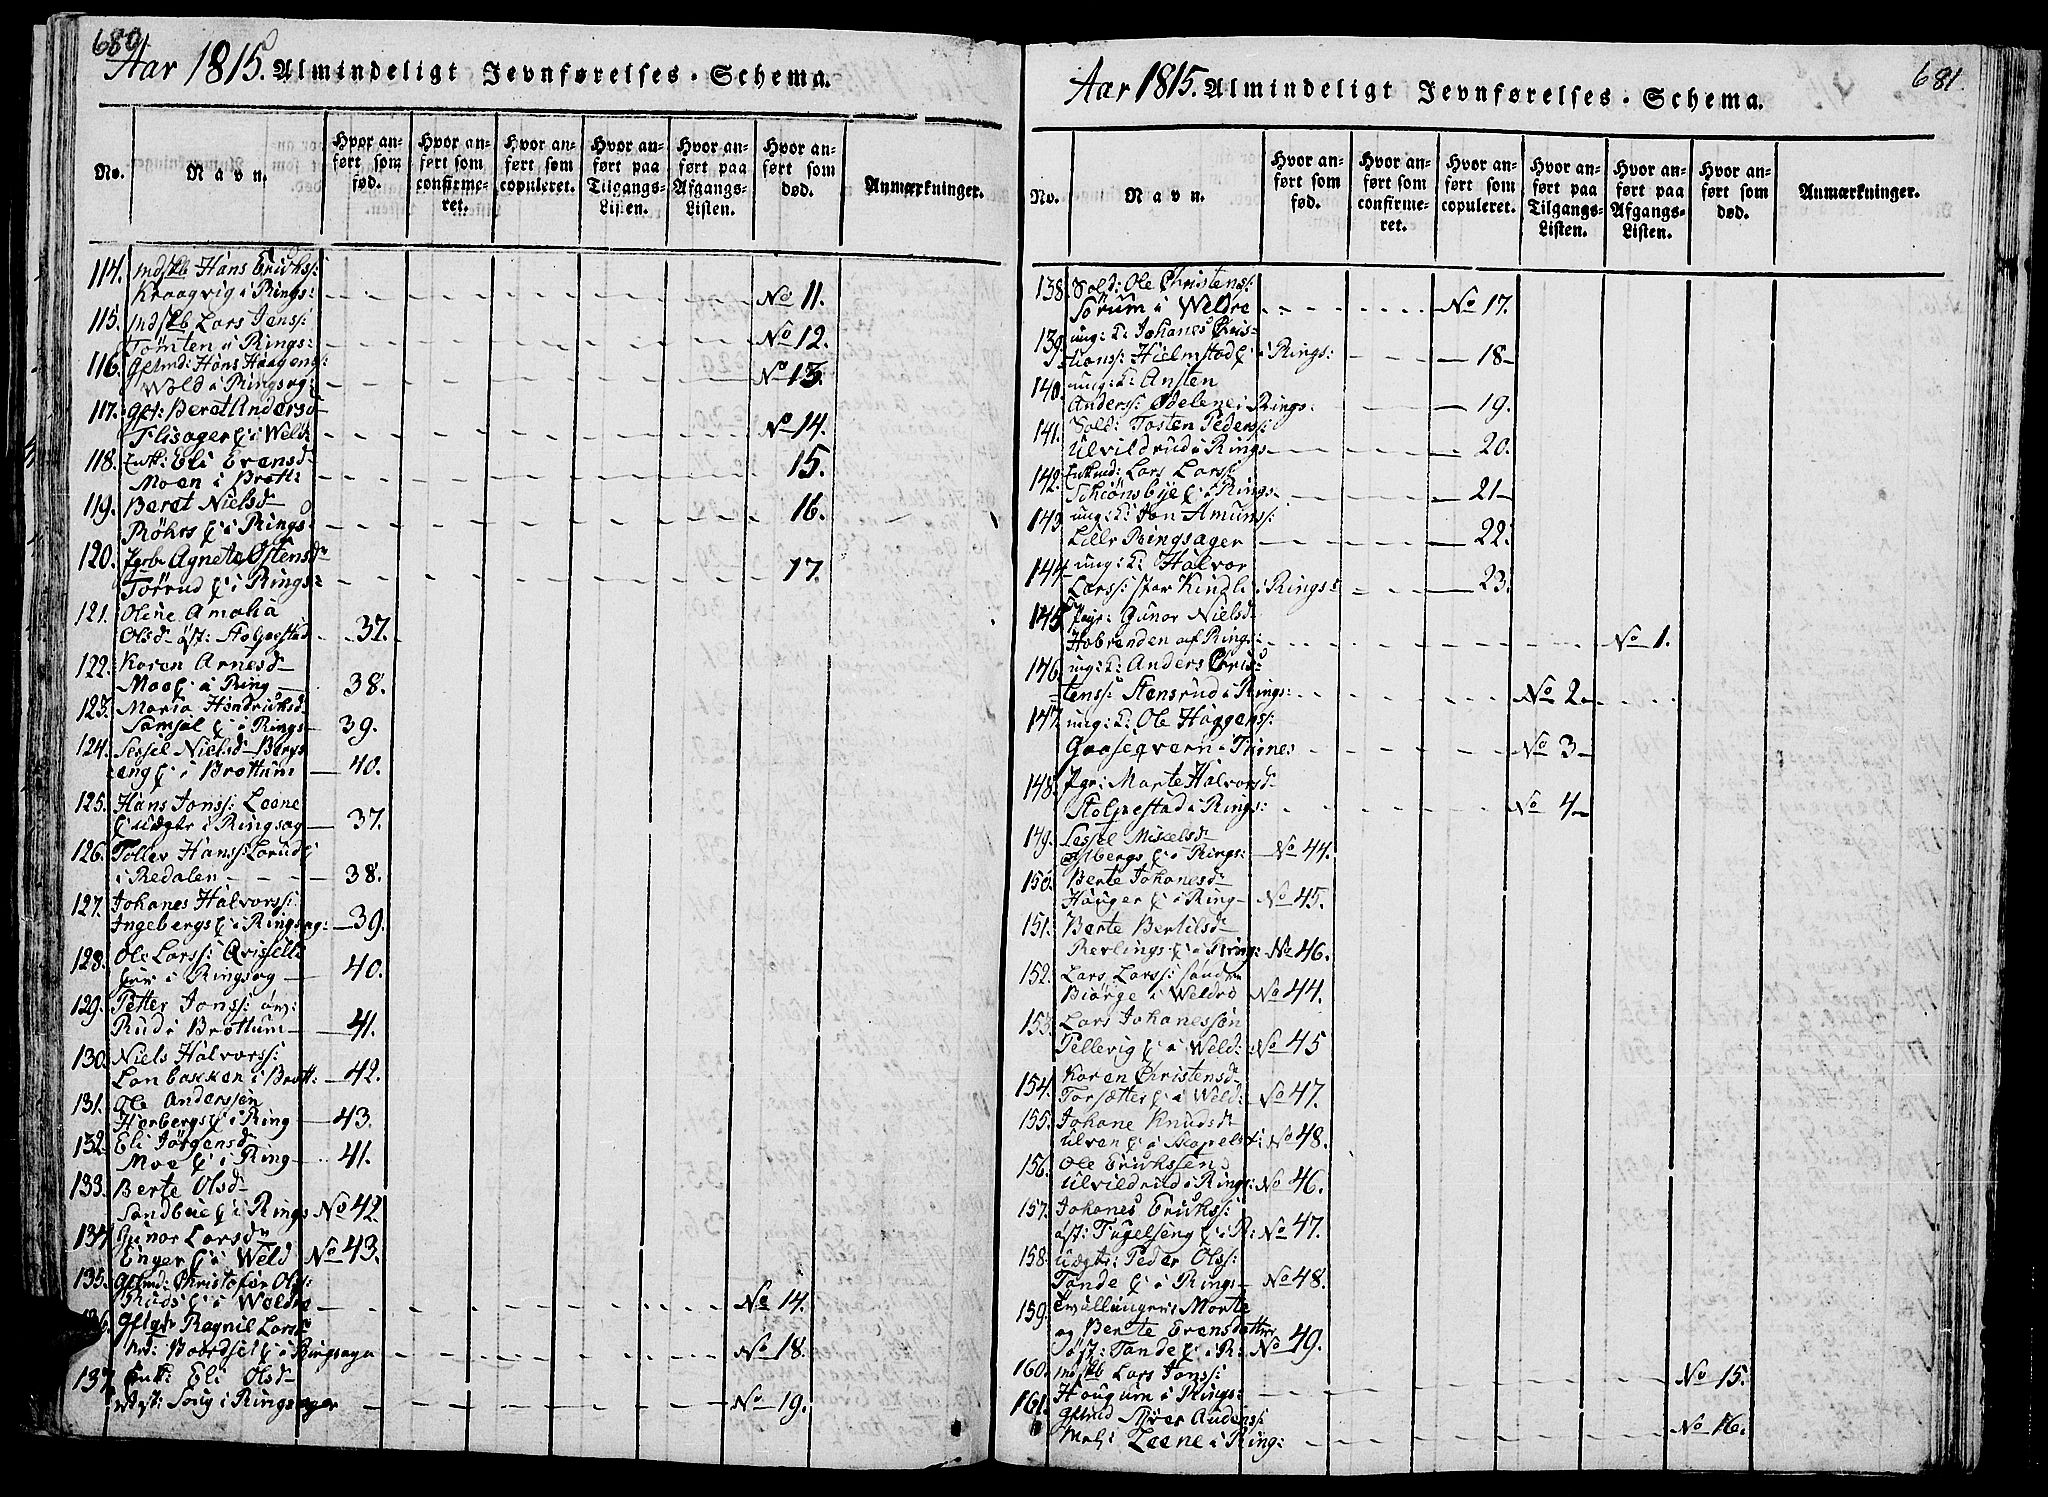 680
Aar 1815. Almindeligt Jevnførelses-Schema.
No.
Navn.
Hvor anført som fød.
Hvor anført som confirmeret.
Hvor anført som copuleret.
Hvor anført paa Tilgangs-Listen.
Hvor anført paa Afgangs-Listen.
Hvor anført som død.
Anmærkninger.
114. Indskb Hans Erichs:
Kraagvig i Rings: No 11.
115. Indskb Lars Jens:
Tömten i Rings: No 12.
116. Gftmd: Hans Haagens:
Wold i Ringsag: No 13.
117. Gft: Beret Andersd
Flisager E i Weld: No 14.
118. Enk: Eli Evensd
Moen i Brott: 15.
119. Beret Nielsd
Röhrs E i Rings: 16.
120. Agnete Ostensd
Törrud E i Rings: 17.
121. Olene Amalia
Olsd öst: Stolpestad 37.
122. Karen Arnesd
Moe E i Ring 38.
123. Maria Hendrichsd
Samsal E i Rings 39.
124. Sessel Nielsd Bergs
eng E i Brottum 40.
125. Hans Jonss: Loene
i Ringsag 37.
126. Toller Hanss: Lorud E
i Redalen 38.
127. Johanes Halvorss:
Ingebergs E i Ringsag: 39.
128. Ole Larss:
i Ringsag 40.
129. Petter Jonss:
Rud i Brottum 41.
130. Niels Halvorss:
Lonbakken i Brott: 42.
131. Ole Anderssen
Herbergs E i Ring 43.
132. Eli Jörgensd
Moe E i Ring 41.
133. Berte Olsd
Sandbue E i Rings No 42
134 Gunor Larsd
Enger E i Weld No 43.
135. Gftmd: Christofer Ols:
Ruds E i Weldre No 14.
136. Ragnil Larsd
Nd: Boordsel E i Ringsager No 18.
137 Enk: Eli Olsd
Vest: Song i Ringsager No 19.
681.
Aar 1815. Almindeligt Jevnførelses-Schema.
No.
Navn.
Hvor anført som fød.
Hvor anført som confirmeret.
Hvor anført som copuleret.
Hvor anført paa Tilgangs-Listen.
Hvor anført paa Afgangs-Listen.
Hvor anført som død.
Anmærkninger.
138. Sold: Ole Christens:
Sörum i Weldre No 17.
139. ung: K: Johanes Chris-
tians: Hielmstad E i Rings: 18
140. ung: K: Ansten
Anderss: Ödelene i Rings: 19.
141. Sold: Tosten Peders:
Ulvildrud i Rings 20.
142. Enkmd: Lars Larss:
Schiönsbye E i Rings 21
143. ung: K: Jon Amuns:
Lille Ringsager 22.
144 ung: K: Halvor
Larss: stor Kindli i Rings: 23.
145 Pige: Gunor Nielsd
Hobrenden af Rings: No 1.
146 ung: K: Anders Chris
tenss: Stensrud i Rings: No 2
147. ung: K: Ole Haggens:
Gaaseqvern i Furnes No 3
148. Pgr: Marte Halvorsd
Stolpestad i Rings: No 4
149. Sessel Mikelsd
Asbergs E i Rings: No 44.
150. Berte Johanesd
Hauger E i Ring No 45.
151. Berte Bertilsd
Rerlings E i Ring: No 46.
152. Lars Larss: söndre
Biörge i Weldre No 44.
153 Lars Johanessön
Pellerig E i Weld: No 45
154. Karen Christensd
Torsætter E i Weld: No 47.
155. Johane Knudsd
Ulven E i No 48.
156. Ole Erichssen
Ulvildrud i Rings: No 46.
157. Johanes Erichs:
öst: Fugelseng E i R: No 47.
158. Uægte: Peder Olss:
Tande E i Rings No 48.
159. Tvillinger: Marte
og Berte Evensdatter
öst: Tande E i R: No 49.
160. Indskb Lars Jonss:
Haugum i Rings: No 15.
161. Gftmd Siver Audens:
Loene i Ring: No 16.